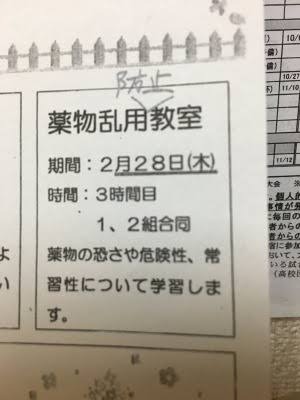 防止
薬物乱用教室
期間：2月28日(木)
時間：3時間目
1、2組合同
薬物の恐さや危険性、常
習性について学習しま
す。
よ
い
10/27
11/10
11/12
大会
個人的
事情が発
に毎回の
者からの
者からの
宿に参加
いる試合
(高校団